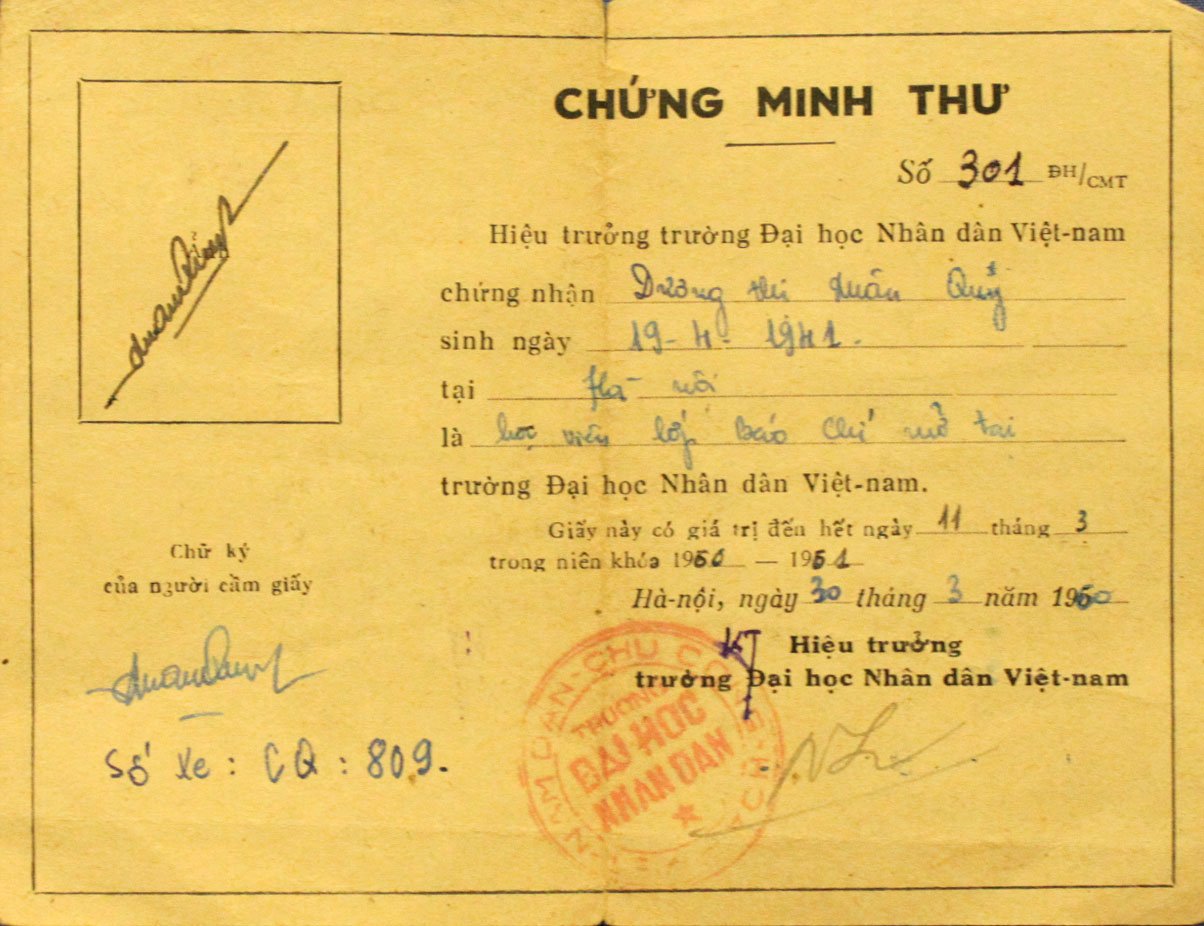 CHỨNG MINH THƯ
Số 301 ĐH/CMT
Hiệu trưởng trường Đại học Nhân dân Việt-nam
chứng nhận Dương thị Xuân Quý
sinh ngày 19-4-1941.
tại Hà nội
là học viên lớp Báo Chí mở tại
trường Đại học Nhân dân Việt-nam.
Giấy này có giá trị đến hết ngày 11 tháng 3
trong niên khóa 1960 — 1961
Hà-nội, ngày 30 tháng 3 năm 1960
KT Hiệu trưởng
trường Đại học Nhân dân Việt-nam
TRƯỜNG
ĐẠI HỌC
NHÂN DÂN
Chữ ký
của người cầm giấy
Số xe : CQ : 809.